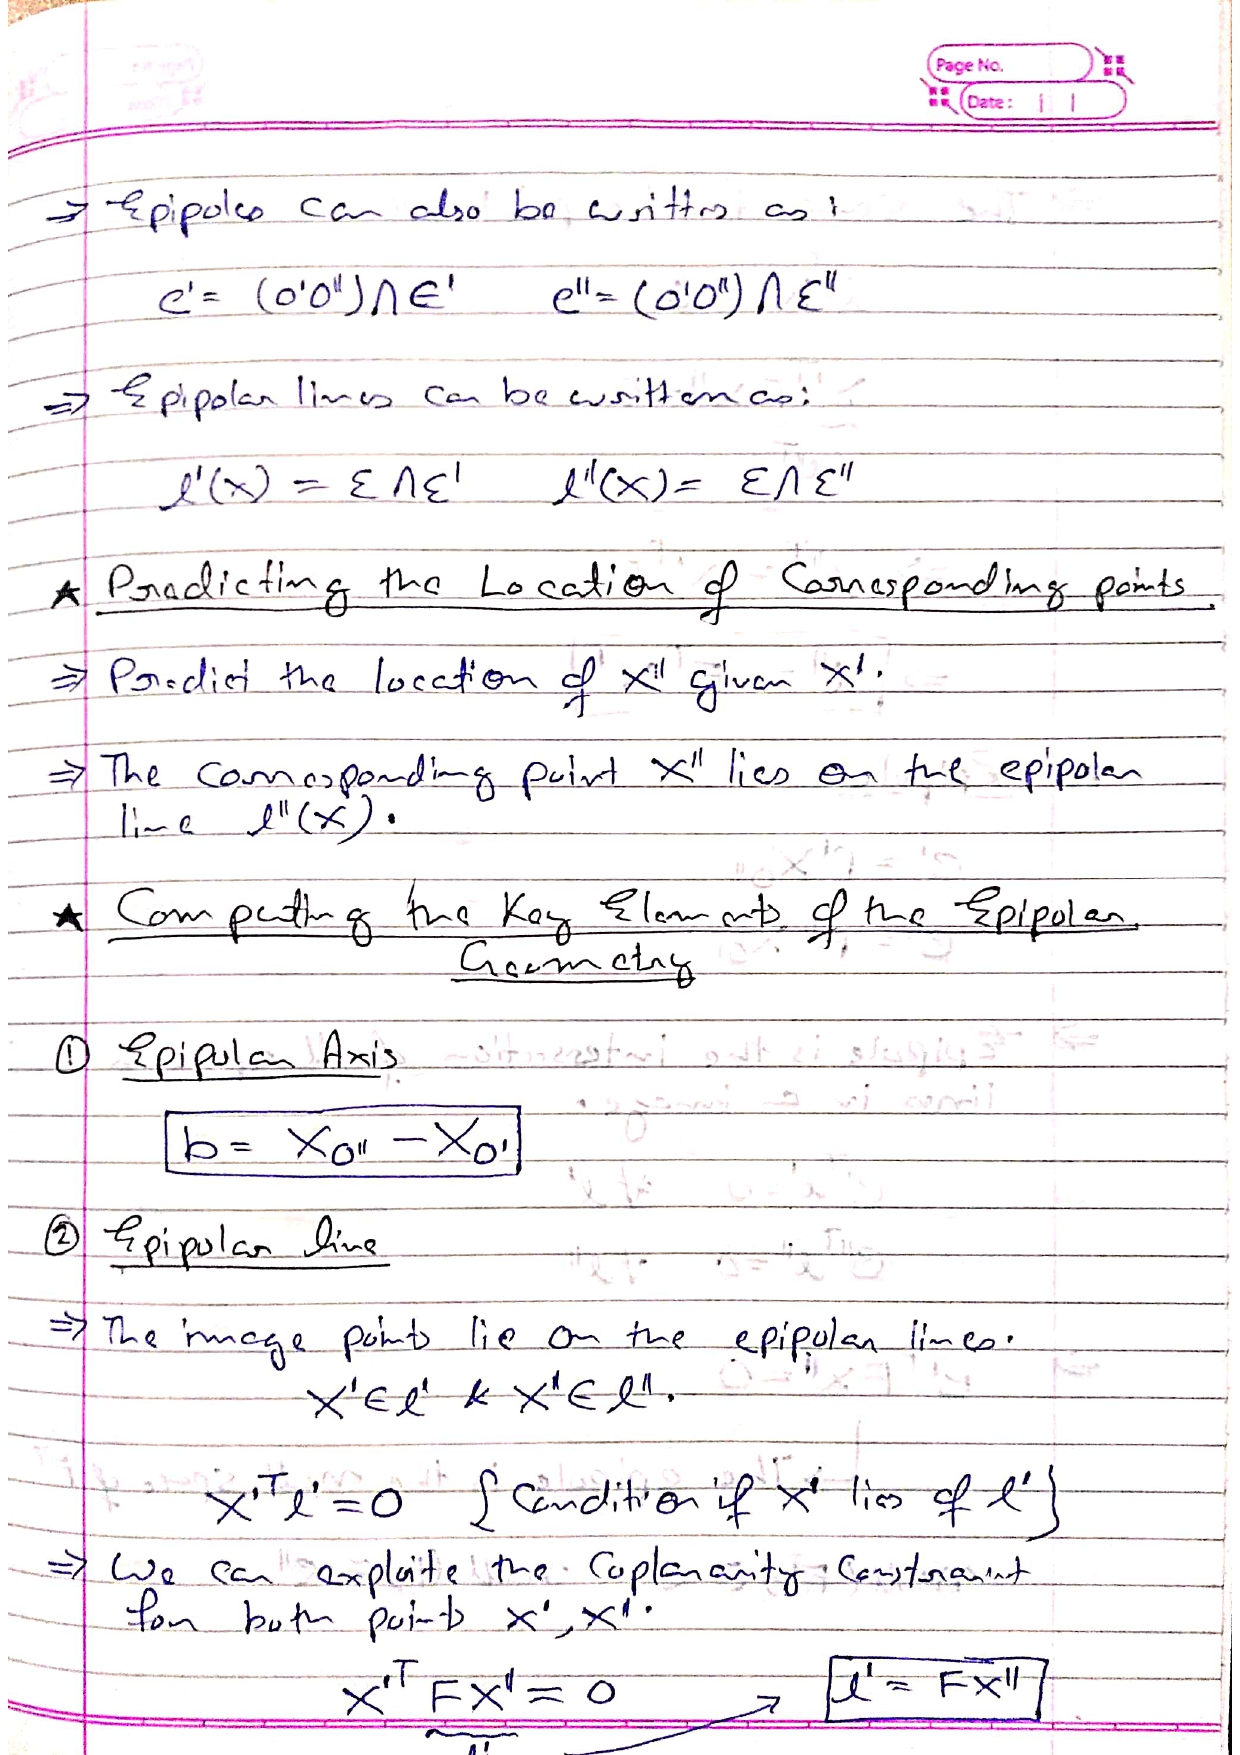 Page No.
Date:
⇒ Epipoles can also be written as:
e' = (O'O'') ∩ ε'    e'' = (O'O'') ∩ ε''
⇒ Epipolar lines can be written as:
l'(X) = ε ∩ ε'    l''(X) = ε ∩ ε''
★ Predicting the Location of Corresponding points.
⇒ Predict the location of x'' given x'.
⇒ The corresponding point x'' lies on the epipolar
line l''(X).
★ Computing the Key Elements of the Epipolar
Geometry
① Epipolar Axis
b = X_O'' - X_O'
② Epipolar line
⇒ The image points lie on the epipolar lines.
x' ∈ l' & x'' ∈ l''.
x'ᵀl' = 0    {Condition if x' lies of l'}
⇒ We can exploite the Coplanarity Constraint
for both points x', x''.
x'ᵀ F x'' = 0    → l' = F x''
l'